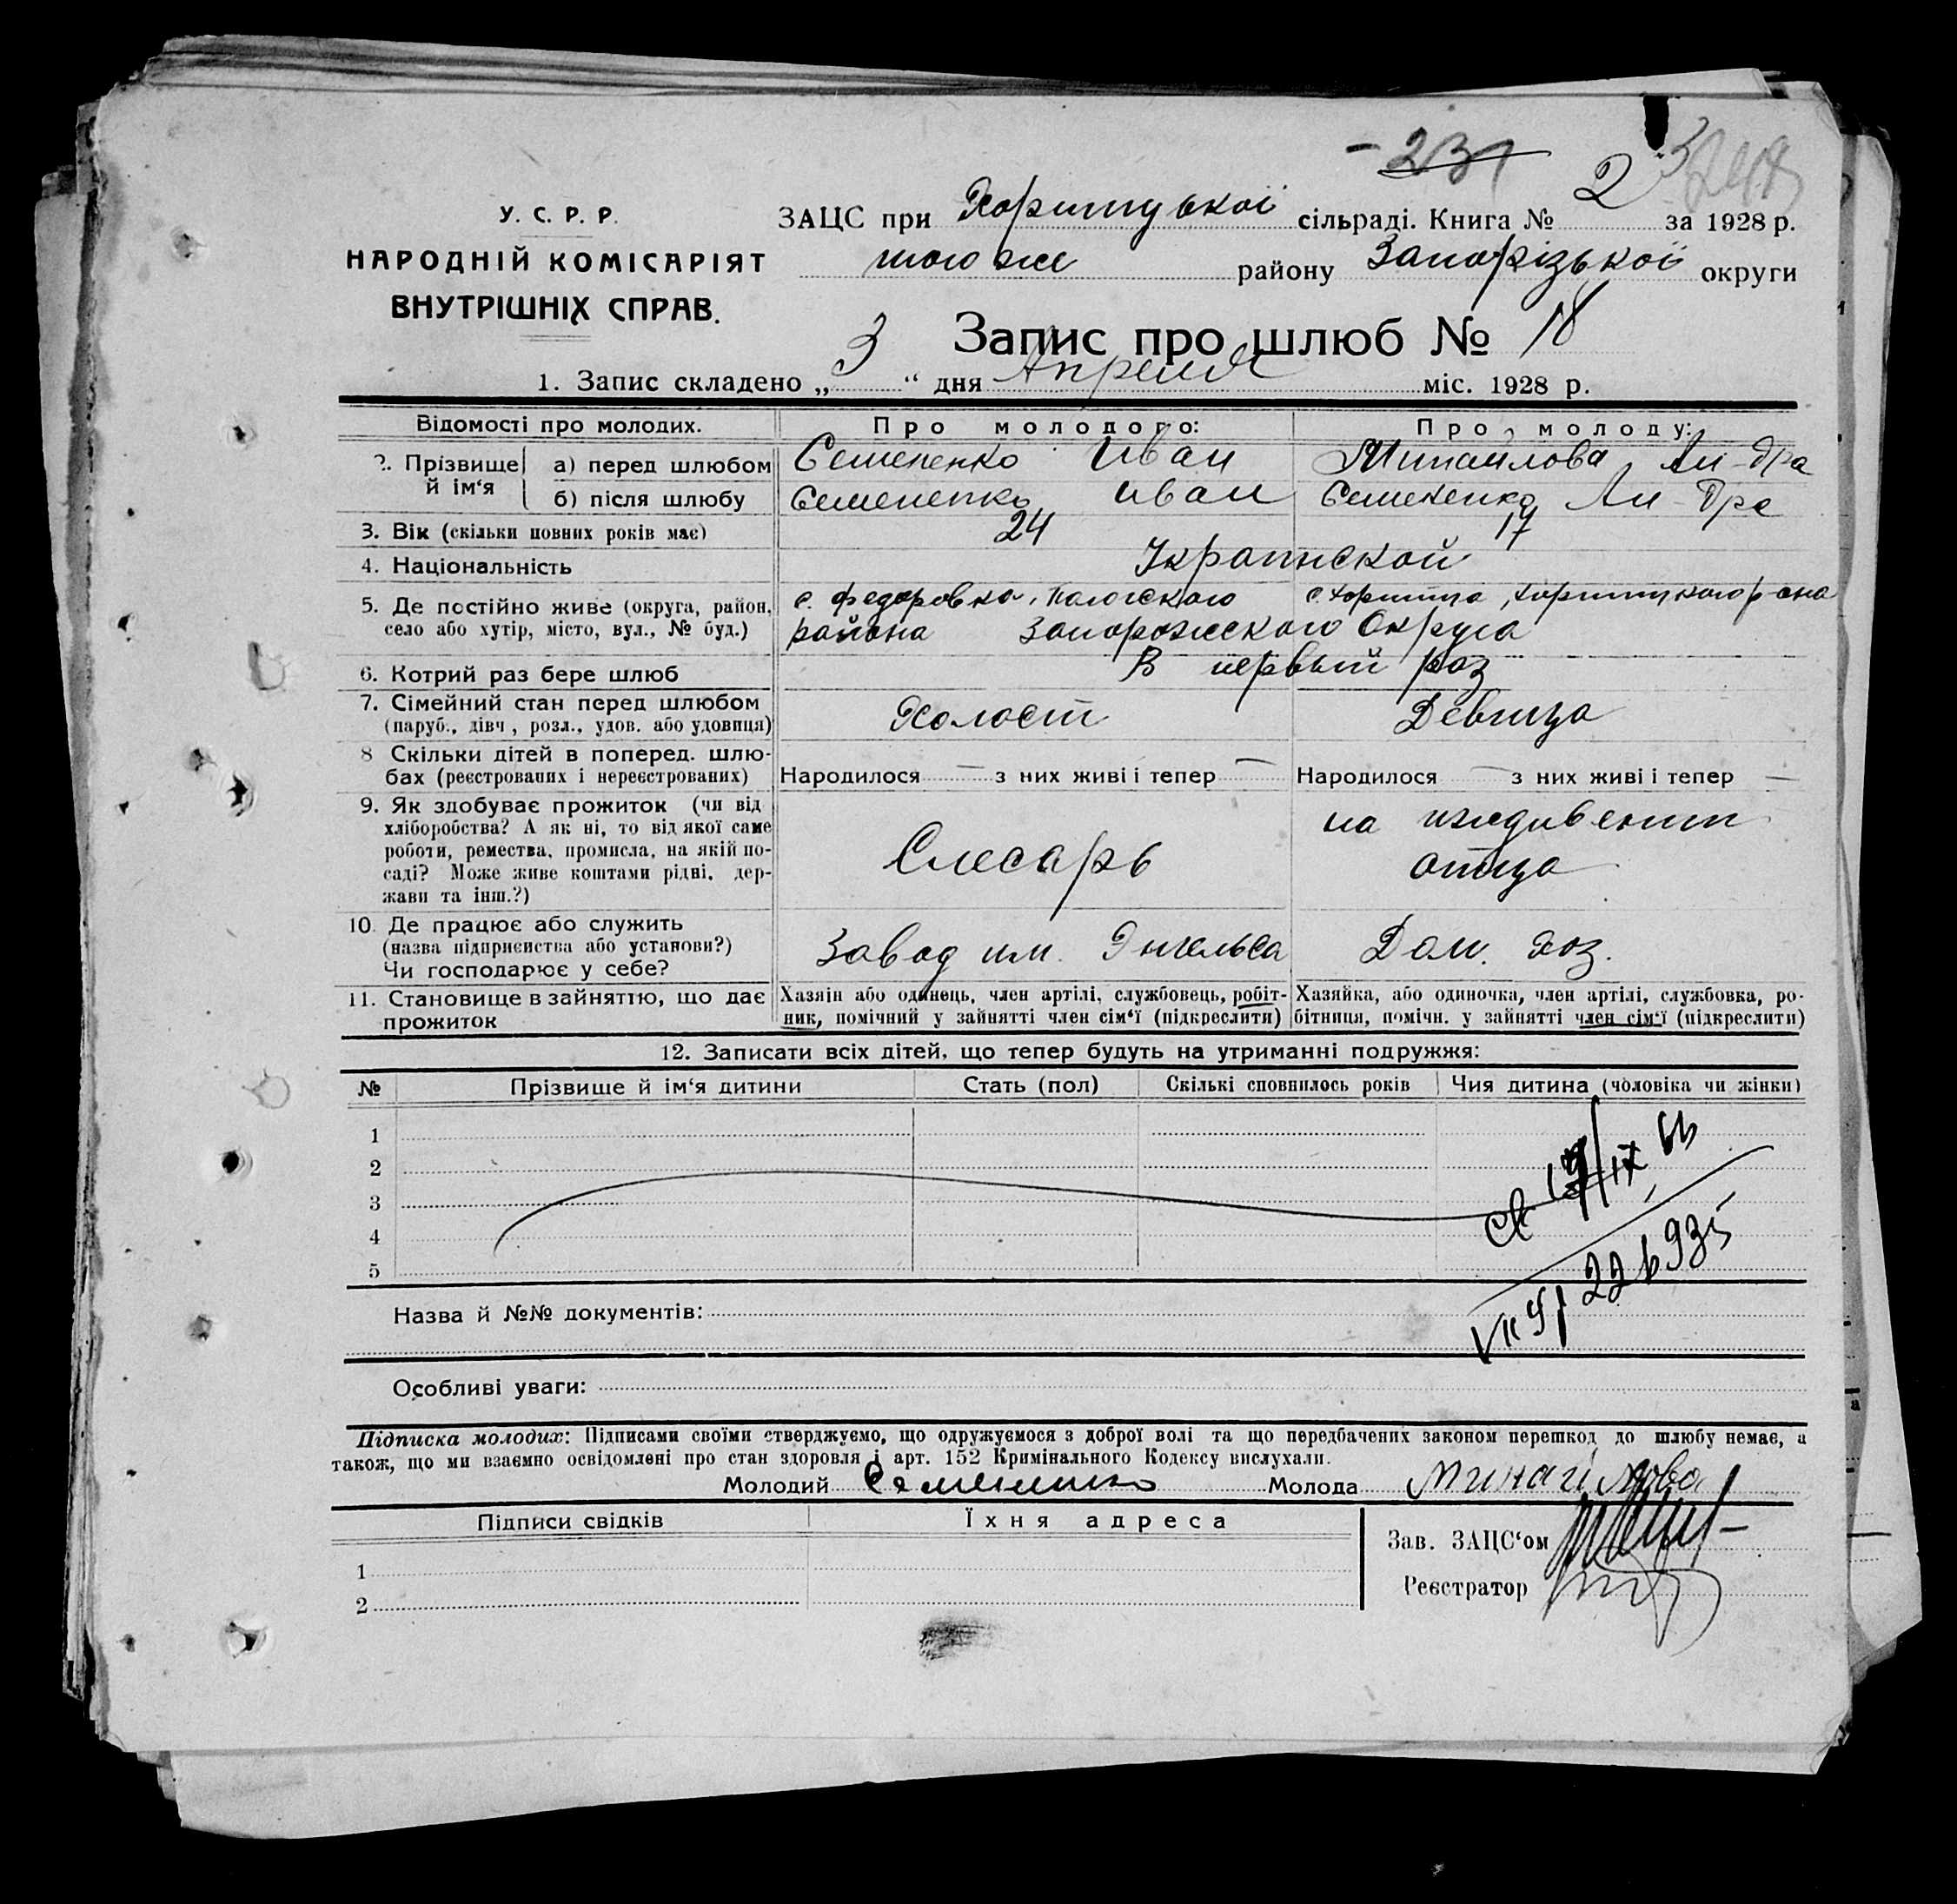 - 231
2
У. С. Р. Р.
НАРОДНІЙ КОМІСАРІЯТ
ВНУТРІШНІХ СПРАВ.
ЗАЦС при Хортицької сільраді. Книга № 2 за 1928 р.
того ж района Запорізької округи
Запис про шлюб № 18
1. Запис складено „ 3 “ дня Апреля міс. 1928 р.
Відомості про молодих. Про молодого: Про молоду:
2. Прізвище й ім‘я
а) перед шлюбом Семененко Иван Михайлова Ал-дра
б) після шлюбу Семененко Иван Семененко Ал-дра
3. Вік (скільки повних років має) 24 17
4. Національність Украинской
5. Де постійно живе (округа, район, с. Федоровка, Пологского с. Хортица, Хортицкого р-она
село або хутір, місто, вул., № буд.) района Запорожского Округа
6. Котрий раз бере шлюб В первый раз
7. Сімейний стан перед шлюбом Холост Девица
(паруб., дівч, розл., удов. або удовиця)
8 Скільки дітей в поперед. шлю-
бах (реєстрованих і нереєстрованих) Народилося — з них живі і тепер — Народилося — з них живі і тепер —
9. Як здобуває прожиток (чи від
хліборобства? А як ні, то від якої саме на иждивении
роботи, ремества, промисла, на якій по- Слесарь отца
саді? Може живе коштами рідні, дер-
жави та інш.?)
10. Де працює або служить
(назва підприємства або установи?) Завод им. Энгельса Дом. хоз.
Чи господарює у себе?
11. Становище в зайняттю, що дає прожиток
Хазяін або одинець, член артілі, службовець, робіт-
ник, помічний у зайнятті член сім‘ї (підкреслити)
Хазяйка, або одиночка, член артілі, службовка, ро-
бітниця, помічн. у зайнятті член сім‘ї (підкреслити)
12. Записати всіх дітей, що тепер будуть на утриманні подружжя:
№ Прізвище й ім‘я дитини Стать (пол) Скількі сповнилось років Чия дитина (чоловіка чи жінки)
1
2
3
4
5
226935
Назва й №№ документів:
Особливі уваги:
Підписка молодих: Підписами своїми стверджуємо, що одружуємося з доброї волі та що передбачених законом перешкод до шлюбу немає, а
також, що ми взаємно освідомлені про стан здоровля і арт. 152 Кримінального Кодексу вислухали.
Молодий Семененко Молода Михайлова
Підписи свідків Їхня адреса
Зав. ЗАЦС‘ом
Реєстратор
1
2